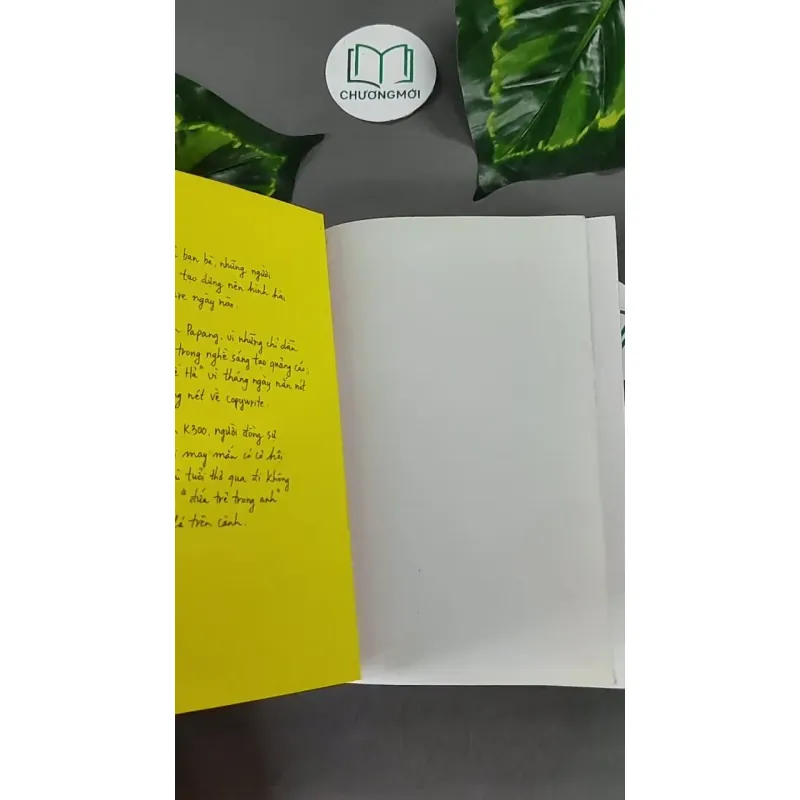 CHƯƠNGMỚI
bạn bè, những người
tạo dựng nên hình hài
ngày nào.
Papang, vì những chỉ dẫn
trong nghề sáng tạo quảng cáo,
Hà" vì tháng ngày nắn nót
nét về copywrite.
K300, người đồng sự
may mắn có cơ hội
tuổi thơ qua đi không
"đứa trẻ trong anh"
lá trên cành.